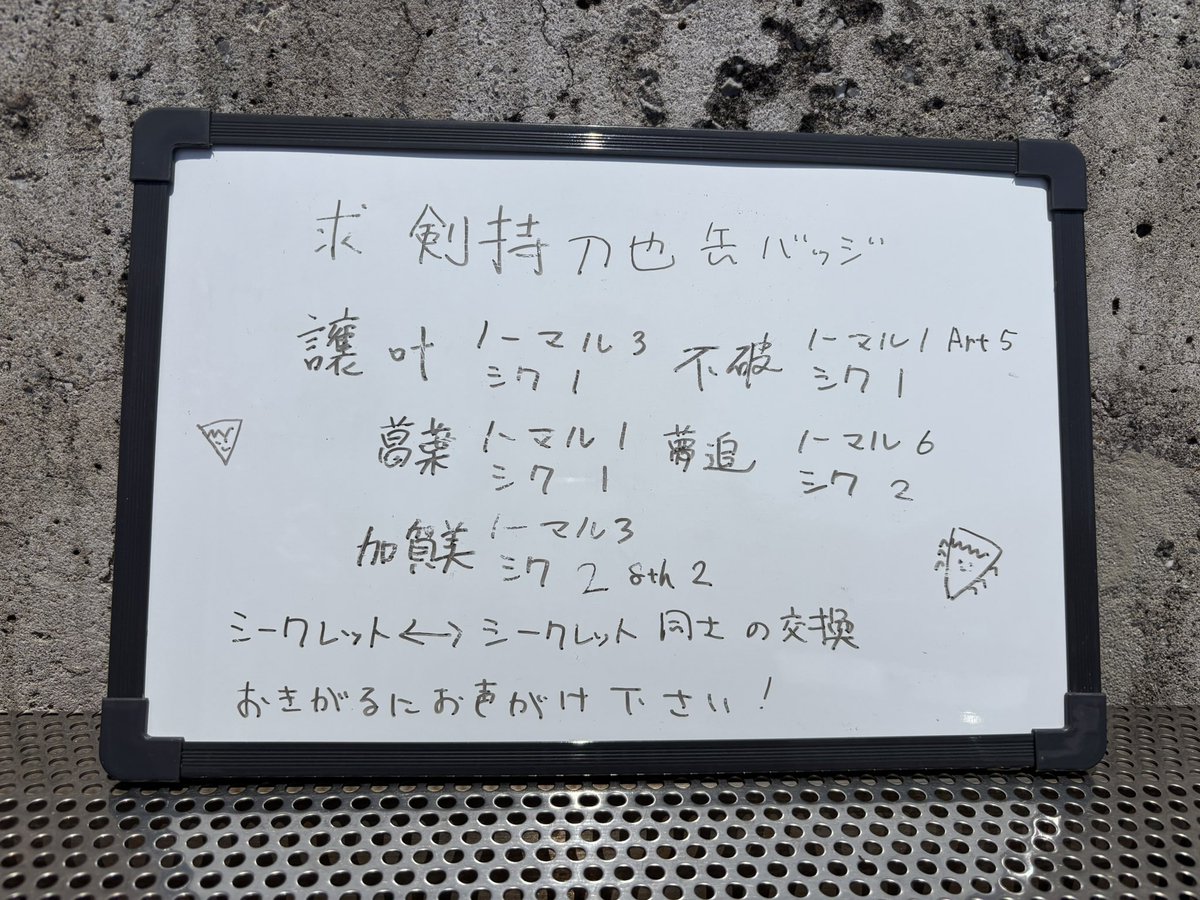 求 剣持刀也缶バッジ
譲 叶 ノーマル3 不破 ノーマル1 Art5
シク 1 シク 1
葛葉 ノーマル1 夢追 ノーマル6
シク 1 シク 2
加賀美 ノーマル3
シク 2 8th 2
シークレット↔シークレット 同士の交換
おきがるにお声がけ下さい!